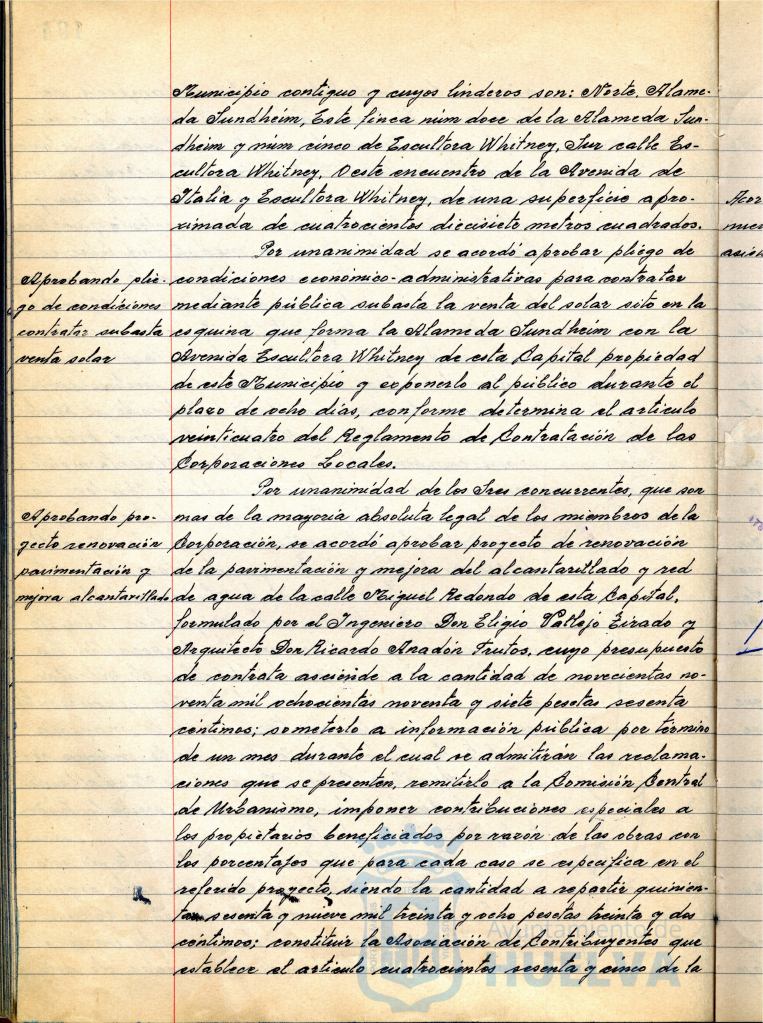 Municipio contiguo y cuyos linderos son: Norte, Alame-
da Sundheim, Este finca núm doce de la Alameda Sun-
dheim y núm cinco de Escultora Whitney, Sur calle Es-
cultora Whitney, Oeste encuentro de la Avenida de
Italia y Escultora Whitney, de una superficie apro-
ximada de cuatrocientos diecisiete metros cuadrados.
Por unanimidad se acordó aprobar pliego de
condiciones económico-administrativas para contratar
mediante pública subasta la venta del solar sito en la
esquina que forma la Alameda Sundheim con la
Avenida Escultora Whitney de esta Capital propiedad
de este Municipio y exponerlo al público durante el
plazo de ocho días, conforme determina el artículo
veinticuatro del Reglamento de Contratación de las
Corporaciones Locales.
Aprobando plie-
go de condiciones
contratar subasta
venta solar
Por unanimidad de los Sres concurrentes, que son
mas de la mayoria absoluta legal de los miembros de la
Corporación, se acordó aprobar proyecto de renovación
de la pavimentación y mejora del alcantarillado y red
de agua de la calle Miguel Redondo de esta Capital,
formulado por el Ingeniero Don Eligio Vallejo Eirado y
Arquitecto Don Ricardo Anadón Frutos, cuyo presupuesto
de contrata asciende a la cantidad de novecientas no-
venta mil ochocientas noventa y siete pesetas sesenta
céntimos; someterlo a información pública por término
de un mes durante el cual se admitirán las reclama-
ciones que se presenten, remitirlo a la Comisión Central
de Urbanismo, imponer contribuciones especiales a
los propietarios beneficiados por razón de las obras con
los porcentajes que para cada caso se especifica en el
referido proyecto, siendo la cantidad a repartir quinien-
tas sesenta y nueve mil treinta y ocho pesetas treinta y dos
céntimos; constituir la Asociación de Contribuyentes que
establece el artículo cuatrocientos sesenta y cinco de la
Aprobando pro-
yecto renovación
pavimentación y
mejora alcantarillado
Ayuntamiento de
HUELVA